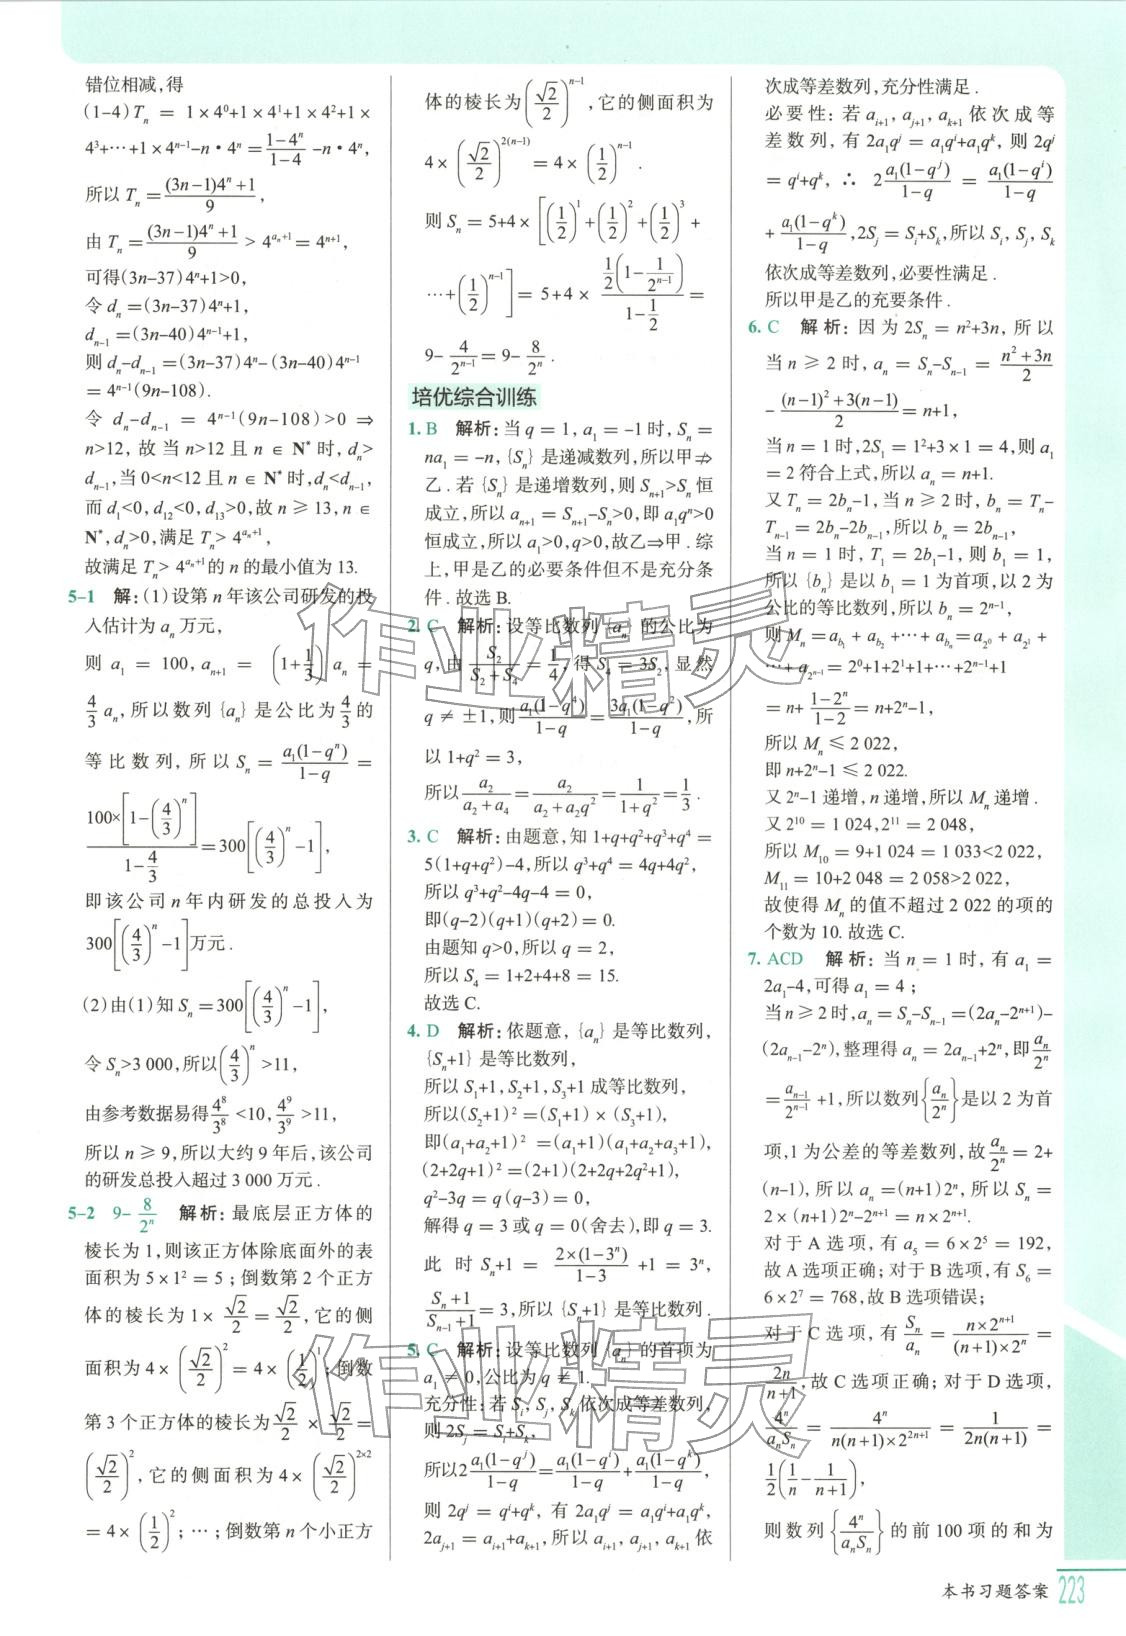 错位相减,得
(1-4)Tₙ = 1×4⁰+1×4¹+1×4²+1×
4³+…+1×4ⁿ⁻¹-n·4ⁿ=(1-4ⁿ)/(1-4)-n·4ⁿ,
所以 Tₙ=((3n-1)4ⁿ+1)/9,
由 Tₙ=((3n-1)4ⁿ+1)/9 > 4^(aₙ+1) = 4ⁿ⁺¹,
可得(3n-37)4ⁿ+1>0,
令 dₙ=(3n-37)4ⁿ+1,
dₙ₋₁=(3n-40)4ⁿ⁻¹+1,
则 dₙ-dₙ₋₁=(3n-37)4ⁿ-(3n-40)4ⁿ⁻¹
= 4ⁿ⁻¹(9n-108).
令 dₙ-dₙ₋₁ = 4ⁿ⁻¹(9n-108)>0 ⇒
n>12, 故当 n>12 且 n ∈ N* 时, dₙ>
dₙ₋₁,当 0<n<12 且 n ∈ N* 时,dₙ<dₙ₋₁,
而 d₁<0,d₁₂<0,d₁₃>0,故 n ≥ 13,n ∈
N*,dₙ>0,满足 Tₙ> 4^(aₙ+1),
故满足 Tₙ> 4^(aₙ+1) 的 n 的最小值为 13.
5-1 解:(1)设第 n 年该公司研发的投
入估计为 aₙ 万元,
则 a₁ = 100, aₙ₊₁ = (1+1/3) aₙ =
4/3 aₙ,所以数列{aₙ}是公比为 4/3 的
等比数列, 所以 Sₙ = a₁(1-qⁿ)/(1-q) =
100×[1-(4/3)ⁿ]/(1-4/3)=300[(4/3)ⁿ-1],
即该公司 n 年内研发的总投入为
300[(4/3)ⁿ-1]万元.
(2)由(1)知 Sₙ=300[(4/3)ⁿ-1],
令 Sₙ>3 000,所以(4/3)ⁿ>11,
由参考数据易得 4⁸/3⁸<10, 4⁹/3⁹>11,
所以 n ≥ 9,所以大约 9 年后,该公司
的研发总投入超过 3 000 万元.
5-2 9-8/2ⁿ 解析:最底层正方体的
棱长为 1,则该正方体除底面外的表
面积为 5×1² = 5 ;倒数第 2 个正方
体的棱长为 1×√2/2=√2/2,它的侧
面积为 4×(√2/2)² = 4×(1/2)¹;倒数
第 3 个正方体的棱长为 √2/2 × √2/2 =
(√2/2)²,它的侧面积为 4×(√2/2)²ˣ²
= 4×(1/2)²; … ;倒数第 n 个小正方
体的棱长为(√2/2)ⁿ⁻¹,它的侧面积为
4×(√2/2)²⁽ⁿ⁻¹⁾ = 4×(1/2)ⁿ⁻¹.
则 Sₙ = 5+4×[(1/2)¹+(1/2)²+(1/2)³+
…+(1/2)ⁿ⁻¹]= 5+4× (1/2)(1-1/2ⁿ⁻¹)/(1-1/2) =
9-4/2ⁿ⁻¹=9-8/2ⁿ.
培优综合训练
1. B 解析:当 q = 1, a₁ = -1 时, Sₙ =
na₁ = -n,{Sₙ}是递减数列,所以甲⇏
乙. 若{Sₙ}是递增数列,则 Sₙ₊₁>Sₙ 恒
成立,所以 aₙ₊₁ = Sₙ₊₁-Sₙ>0,即 a₁qⁿ>0
恒成立,所以 a₁>0,q>0,故乙⇒甲. 综
上,甲是乙的必要条件但不是充分条
件. 故选 B.
2. C 解析:设等比数列{aₙ}的公比为
q,由 S₂/(S₂+S₄) = 1/4, 得 S₄ = 3S₂, 显然
q ≠ ±1,则 a₁(1-q⁴)/(1-q)=3a₁(1-q²)/(1-q),所
以 1+q² = 3,
所以 a₂/(a₂+a₄)=a₂/(a₂+a₂q²)=1/(1+q²)=1/3.
3. C 解析:由题意,知 1+q+q²+q³+q⁴ =
5(1+q+q²)-4,所以 q³+q⁴ = 4q+4q²,
所以 q³+q²-4q-4 = 0,
即(q-2)(q+1)(q+2) = 0.
由题知 q>0,所以 q = 2,
所以 S₄ = 1+2+4+8 = 15.
故选 C.
4. D 解析:依题意,{aₙ}是等比数列,
{Sₙ+1}是等比数列,
所以 S₁+1, S₂+1, S₃+1 成等比数列,
所以(S₂+1)² =(S₁+1)×(S₃+1),
即(a₁+a₂+1)² =(a₁+1)(a₁+a₂+a₃+1),
(2+2q+1)² =(2+1)(2+2q+2q²+1),
q²-3q = q(q-3) = 0,
解得 q = 3 或 q = 0(舍去),即 q = 3.
此时 Sₙ+1 = 2×(1-3ⁿ)/(1-3) +1 = 3ⁿ,
(Sₙ+1)/(Sₙ₋₁+1)=3,所以{Sₙ+1}是等比数列.
5. C 解析:设等比数列{aₙ}的首项为
a₁ ≠ 0,公比为 q ≠ 1.
充分性:若 Sᵢ, Sⱼ, Sₖ 依次成等差数列,
则 2Sⱼ = Sᵢ+Sₖ,
所以 2a₁(1-qʲ)/(1-q)=a₁(1-qⁱ)/(1-q)+a₁(1-qᵏ)/(1-q),
则 2qʲ = qⁱ+qᵏ, 有 2a₁qʲ = a₁qⁱ+a₁qᵏ,
2aⱼ₊₁ = aᵢ₊₁+aₖ₊₁,所以 aᵢ₊₁, aⱼ₊₁, aₖ₊₁ 依
次成等差数列,充分性满足.
必要性:若 aᵢ₊₁, aⱼ₊₁, aₖ₊₁ 依次成等
差数列, 有 2a₁qʲ = a₁qⁱ+a₁qᵏ, 则 2qʲ
= qⁱ+qᵏ, ∴ 2a₁(1-qʲ)/(1-q) = a₁(1-qⁱ)/(1-q)
+a₁(1-qᵏ)/(1-q),2Sⱼ = Sᵢ+Sₖ,所以 Sᵢ, Sⱼ, Sₖ
依次成等差数列,必要性满足.
所以甲是乙的充要条件.
6. C 解析:因为 2Sₙ = n²+3n, 所以
当 n ≥ 2 时, aₙ = Sₙ-Sₙ₋₁ = (n²+3n)/2
-((n-1)²+3(n-1))/2 = n+1,
当 n = 1 时,2S₁ = 1²+3×1 = 4,则 a₁
= 2 符合上式,所以 aₙ = n+1.
又 Tₙ = 2bₙ-1,当 n ≥ 2 时, bₙ = Tₙ-
Tₙ₋₁ = 2bₙ-2bₙ₋₁,所以 bₙ = 2bₙ₋₁,
当 n = 1 时, T₁ = 2b₁-1, 则 b₁ = 1,
所以{bₙ}是以 b₁ = 1 为首项,以 2 为
公比的等比数列,所以 bₙ = 2ⁿ⁻¹,
则 Mₙ=a_b₁+a_b₂+…+a_bₙ=a_2⁰+a_2¹+
…+a_2ⁿ⁻¹ = 2⁰+1+2¹+1+…+2ⁿ⁻¹+1
= n+(1-2ⁿ)/(1-2) = n+2ⁿ-1,
所以 Mₙ ≤ 2 022,
即 n+2ⁿ-1 ≤ 2 022.
又 2ⁿ-1 递增,n 递增,所以 Mₙ 递增.
又 2¹⁰ = 1 024,2¹¹ = 2 048,
所以 M₁₀ = 9+1 024 = 1 033<2 022,
M₁₁ = 10+2 048 = 2 058>2 022,
故使得 Mₙ 的值不超过 2 022 的项的
个数为 10. 故选 C.
7. ACD 解析: 当 n = 1 时, 有 a₁ =
2a₁-4,可得 a₁ = 4 ;
当 n ≥ 2 时,aₙ = Sₙ-Sₙ₋₁ =(2aₙ-2ⁿ⁺¹)-
(2aₙ₋₁-2ⁿ),整理得 aₙ = 2aₙ₋₁+2ⁿ,即 aₙ/2ⁿ
=aₙ₋₁/2ⁿ⁻¹+1,所以数列{aₙ/2ⁿ}是以 2 为首
项,1 为公差的等差数列,故 aₙ/2ⁿ = 2+
(n-1),所以 aₙ =(n+1)2ⁿ,所以 Sₙ =
2×(n+1)2ⁿ-2ⁿ⁺¹ = n×2ⁿ⁺¹.
对于 A 选项,有 a₅ = 6×2⁵ = 192,
故 A 选项正确;对于 B 选项,有 S₆ =
6×2⁷ = 768,故 B 选项错误;
对于 C 选项, 有 Sₙ/aₙ = n×2ⁿ⁺¹/((n+1)×2ⁿ) =
2n/(n+1),故 C 选项正确;对于 D 选项,
4ⁿ/(aₙSₙ) = 4ⁿ/(n(n+1)×2²ⁿ⁺¹) = 1/(2n(n+1)) =
1/2(1/n-1/(n+1)),
则数列{4ⁿ/(aₙSₙ)}的前 100 项的和为
作业精灵
作业精灵
本书习题答案 223